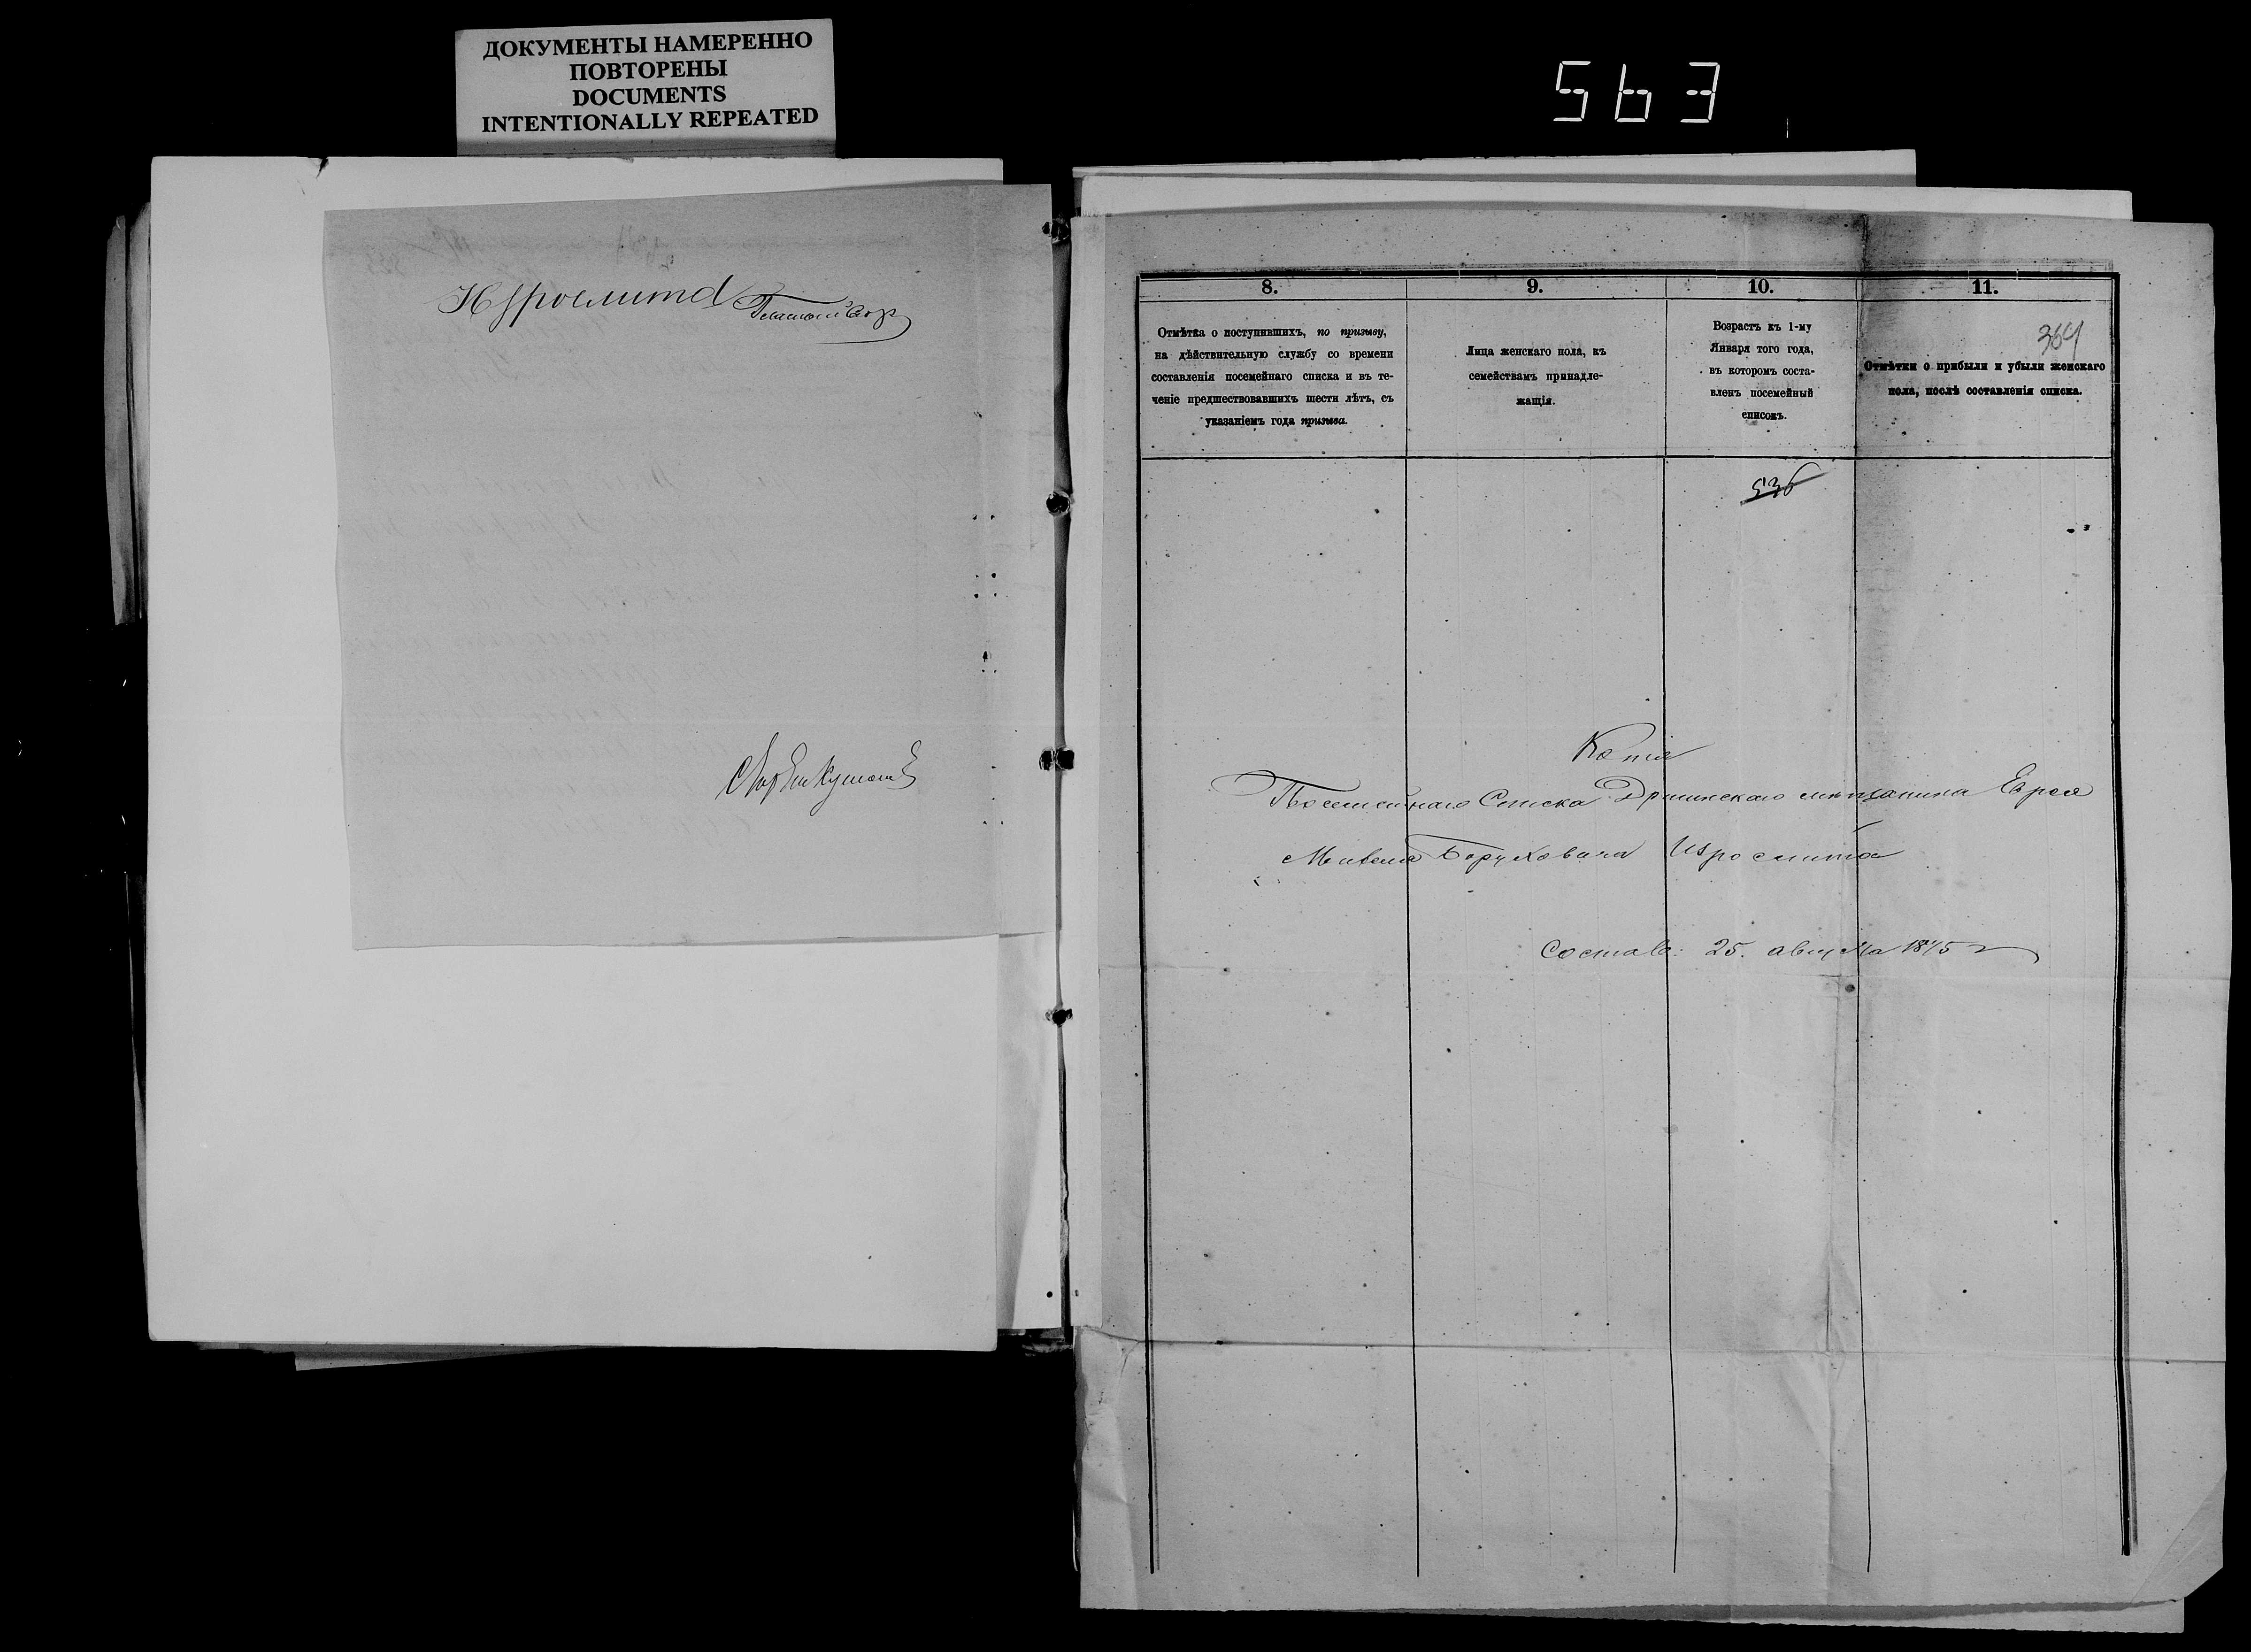 ДОКУМЕНТЫ НАМЕРЕННО
ПОВТОРЕНЫ
DOCUMENTS
INTENTIONALLY REPEATED
563
8.
Отмѣтка о поступившихъ, по призыву,
на дѣйствительную службу со времени
составленія посемейнаго списка и въ те-
ченіе предшествовавшихъ шести лѣтъ, съ
указаніемъ года призыва.
9.
Лица женскаго пола, къ
семействамъ принадле-
жащія.
10.
Возрастъ къ 1-му
Января того года,
въ которомъ соста-
вленъ посемейный
списокъ.
11.
364
Отмѣтки о прибыли и убыли женскаго
пола, послѣ составленія списка.
536
Копія
Посемейнаго Списка мѣщанина Еврея
Боруховича
Состав: 25. августа 1875 г